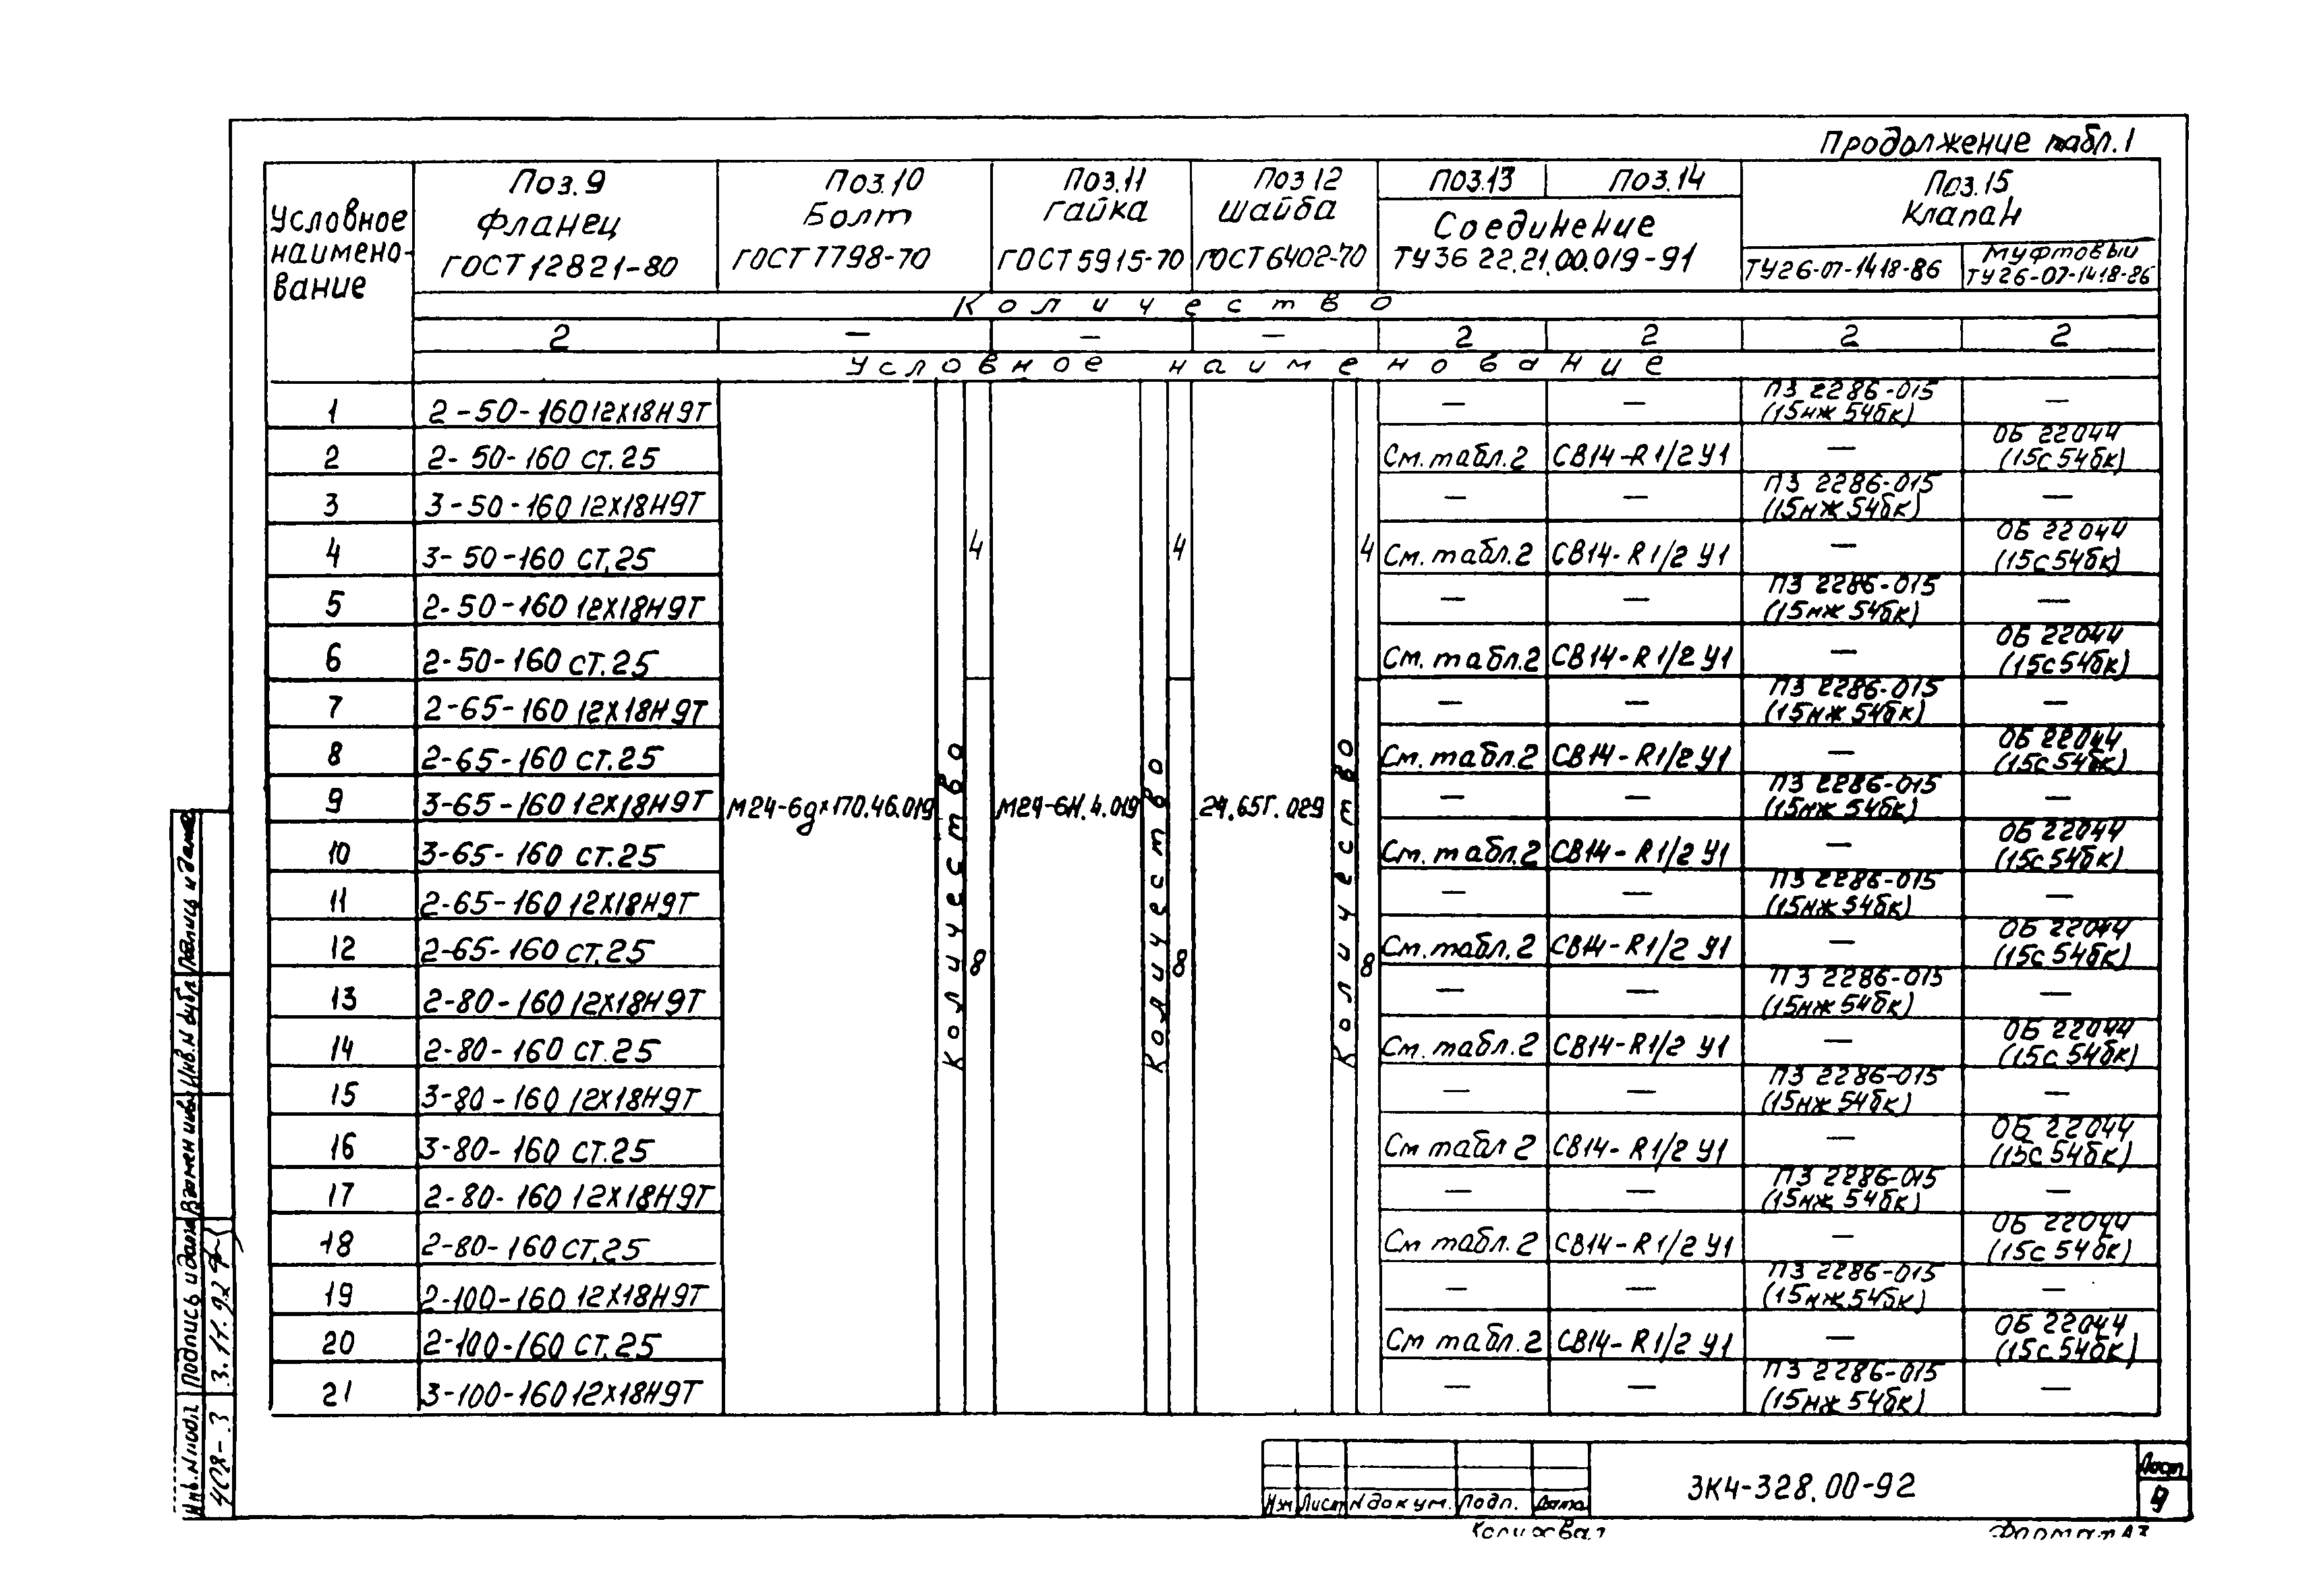 Продолжение табл.1
Условное наимено- вание
Поз.9 Фланец ГОСТ 12821-80
Поз.10 Болт ГОСТ 7798-70
Поз.11 Гайка ГОСТ 5915-70
Поз 12 Шайба ГОСТ 6402-70
Поз.13 Поз.14
Соединение ТУ36 22.21.00.019-91
Поз.15 Клапан
ТУ26-07-1418-86
Муфтовый ТУ26-07-1418-86
Количество
2 — — — 2 2 2 2
Условное наименование
1 2-50-160 12Х18Н9Т — — ПЗ 2286-015 (15нж 54бк) —
2 2-50-160 ст.25 См.табл.2 СВ14-R1/2 У1 — ОБ 22044 (15с54бк)
3 3-50-160 12Х18Н9Т — — ПЗ 2286-015 (15нж 54бк) —
4 3-50-160 ст.25 См.табл.2 СВ14-R1/2 У1 — ОБ 22044 (15с54бк)
5 2-50-160 12Х18Н9Т — — ПЗ 2286-015 (15нж 54бк) —
6 2-50-160 ст.25 См.табл.2 СВ14-R1/2 У1 — ОБ 22044 (15с54бк)
7 2-65-160 12Х18Н9Т — — ПЗ 2286-015 (15нж 54бк) —
8 2-65-160 ст.25 См.табл.2 СВ14-R1/2 У1 — ОБ 22044 (15с54бк)
9 3-65-160 12Х18Н9Т — — ПЗ 2286-015 (15нж 54бк) —
10 3-65-160 ст.25 См.табл.2 СВ14-R1/2 У1 — ОБ 22044 (15с54бк)
11 2-65-160 12Х18Н9Т — — ПЗ 2286-015 (15нж 54бк) —
12 2-65-160 ст.25 См.табл.2 СВ14-R1/2 У1 — ОБ 22044 (15с54бк)
13 2-80-160 12Х18Н9Т — — ПЗ 2286-015 (15нж 54бк) —
14 2-80-160 ст.25 См.табл.2 СВ14-R1/2 У1 — ОБ 22044 (15с 54бк)
15 3-80-160 12Х18Н9Т — — ПЗ 2286-015 (15нж 54бк) —
16 3-80-160 ст.25 См табл 2 СВ14-R1/2 У1 — ОБ 22044 (15с54бк)
17 2-80-160 12Х18Н9Т — — ПЗ 2286-015 (15нж 54бк) —
18 2-80-160 ст.25 См табл.2 СВ14-R1/2 У1 — ОБ 22044 (15с 54бк)
19 2-100-160 12Х18Н9Т — — ПЗ 2286-015 (15нж54бк) —
20 2-100-160 ст.25 См табл.2 СВ14-R1/2 У1 — ОБ 22044 (15с.54бк)
21 3-100-160 12Х18Н9Т — — ПЗ 2286-015 (15нж 54бк) —
М24-6gх170.46.019 Количество 4 8
М24-6Н.4.019 Количество 4 8
24.65Г.029 Количество 4 8
Подпись и дата
Инв.N дубл
Взамен инв
Подпись и дата 3.11.92
Инв.N подл 408-3
Изм Лист N докум. Подп. Дата
3К4-328.00-92
Лист
9
Копировал Формат А3